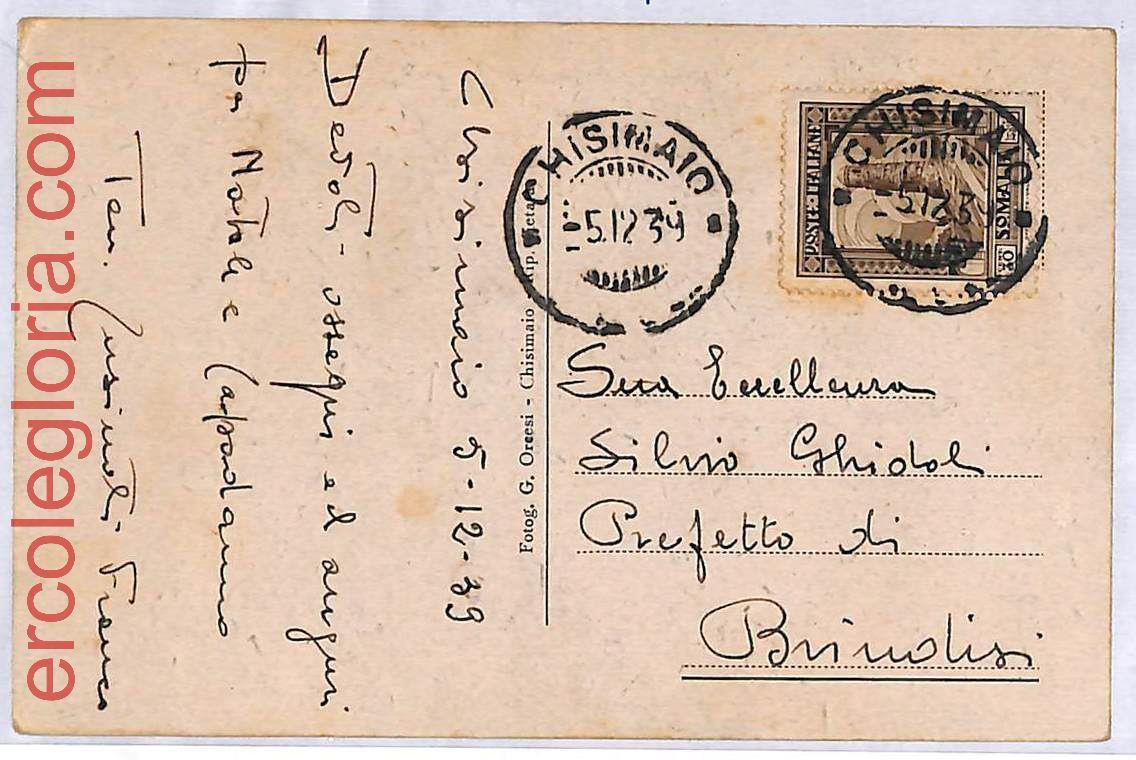 ercolegloria.com
Chisimaio 5-12-39
Devoti ossequi ed auguri
per Natale e Capodanno
Ten. Franco
Fotog. G. Orcesi - Chisimaio
CHISIMAIO
-5.12.39
POSTE ITALIANE
SOMALIA
CHISIMAIO
-5.12.3
Sua Eccellenza
Silvio Ghidoli
Prefetto di
Brindisi